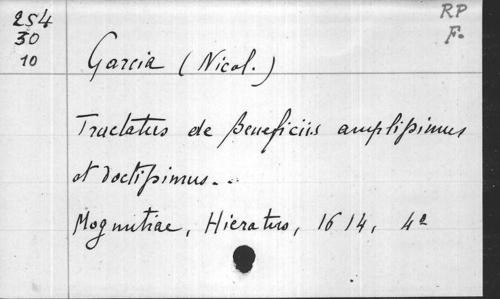 254
30
10
RP
F.
Garcia (Nicol.)
Tractatus de Beneficiis amplissimus
et doctissimus...
Moguntiae, Hieratus, 1614, 4º